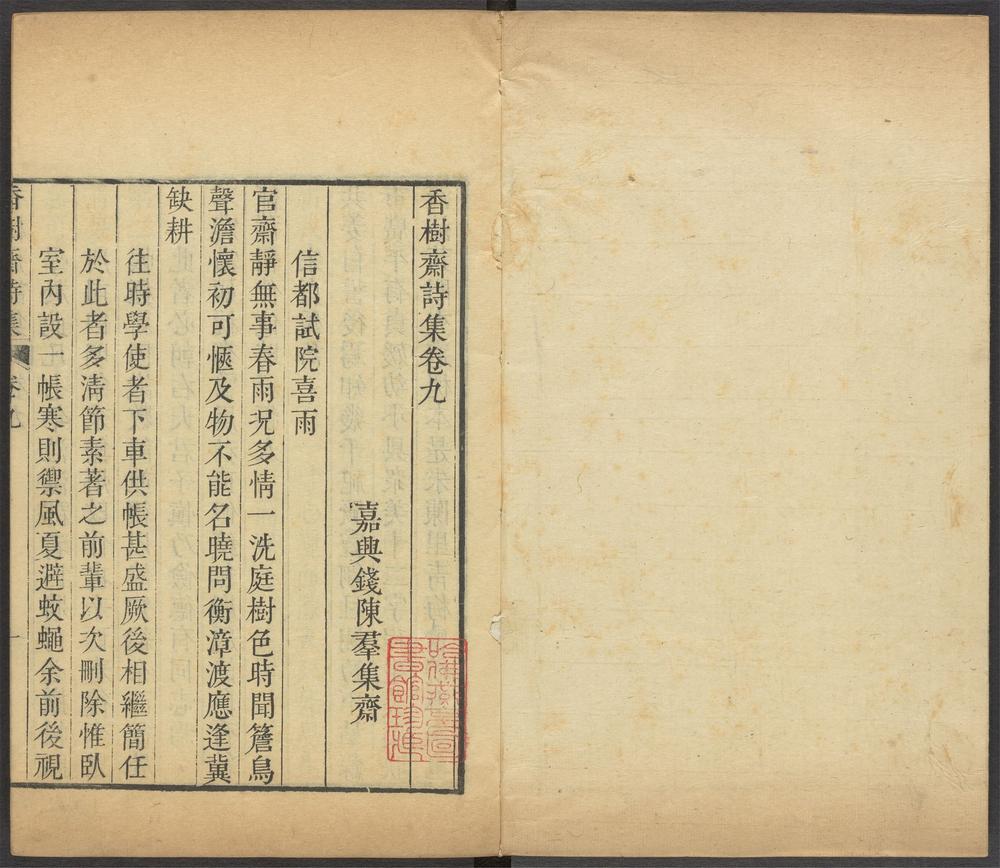 香樹齋詩集卷九
嘉興錢陳羣集齋
信都試院喜雨
官齋靜無事春雨況多情一洗庭樹色時聞簷鳥
聲澹懷初可愜及物不能名曉問衡漳渡應逢冀
缺耕
往時學使者下車供帳甚盛厥後相繼簡任
於此者多清節素著之前輩以次刪除惟臥
室內設一帳寒則禦風夏避蚊蠅余前後視
香樹齋詩集 卷九 一
哈佛燕京圖
書館珍藏